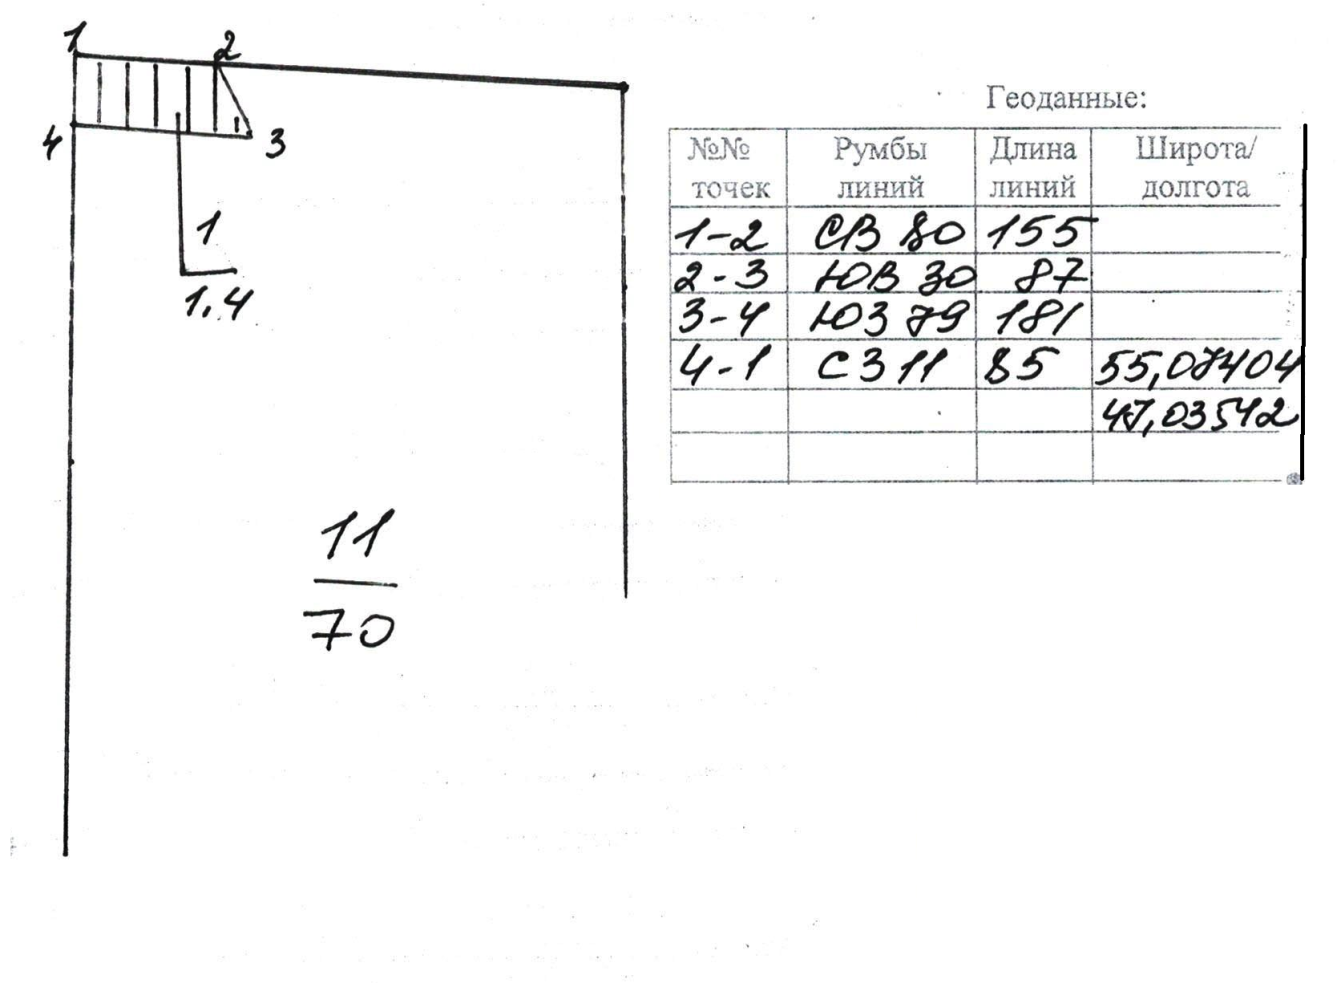 1
2
4
3
1
1.4
11
70
Геоданные:
№№ точек Румбы линий Длина линий Широта/ долгота
1-2 СВ 80 155
2-3 ЮВ 30 87
3-4 ЮЗ 79 181
4-1 СЗ 11 85 55,07404
47,03542